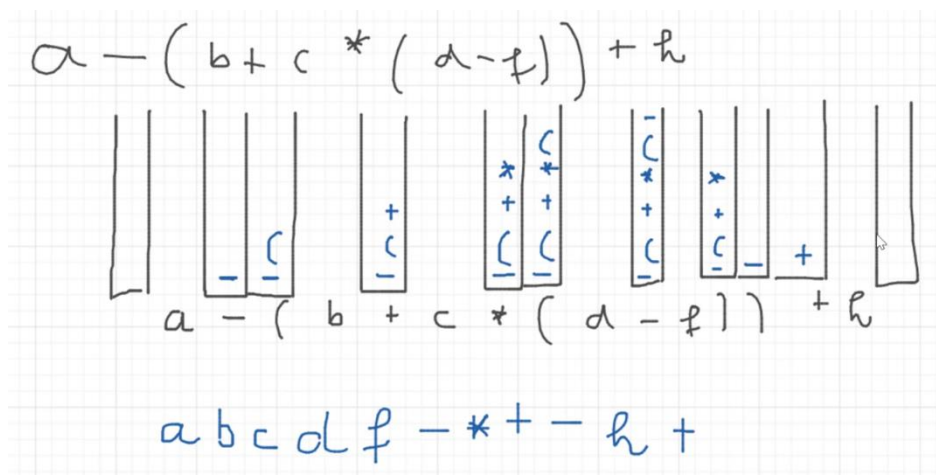 a - ( b + c * ( d - f ) ) + h
- ( * ( - ( * + ( - ( + ( - * + ( - - +
a - ( b + c * ( d - f ) ) + h
a b c d f - * + - h +